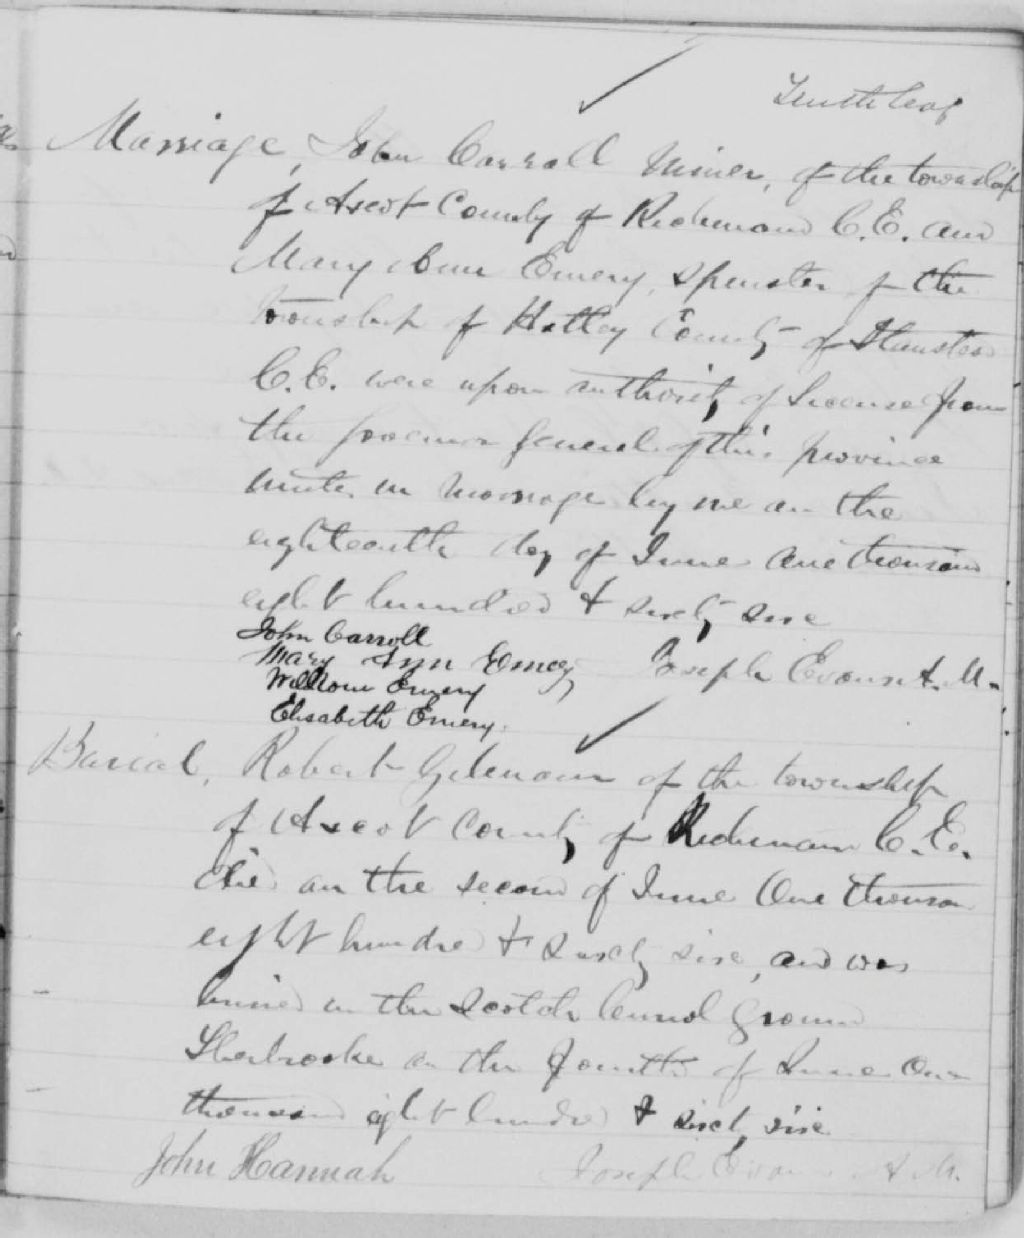 Tenth leaf
Marriage, John Carroll Miner, of the township
of Ascot County of Richmond C.E. and
Mary Ann Emery, Spinster of the
Township of Hatley County of Stanstead
C.E. were upon authority of License from
the Governor General of this province
united in marriage by me on the
eighteenth day of June One thousand
eight hundred & sixty six
John Carroll
Mary Ann Emery Joseph Evans A.M.
William Emery
Elisabeth Emery.
Burial, Robert Gilmour of the township
of Ascot County of Richmond C.E.
died on the second of June One thousand
eight hundred & sixty six, and was
buried in the Scotch burial ground
Sherbrooke on the fourth of June One
thousand eight hundred & sixty six
John Hannah Joseph Evans A.M.